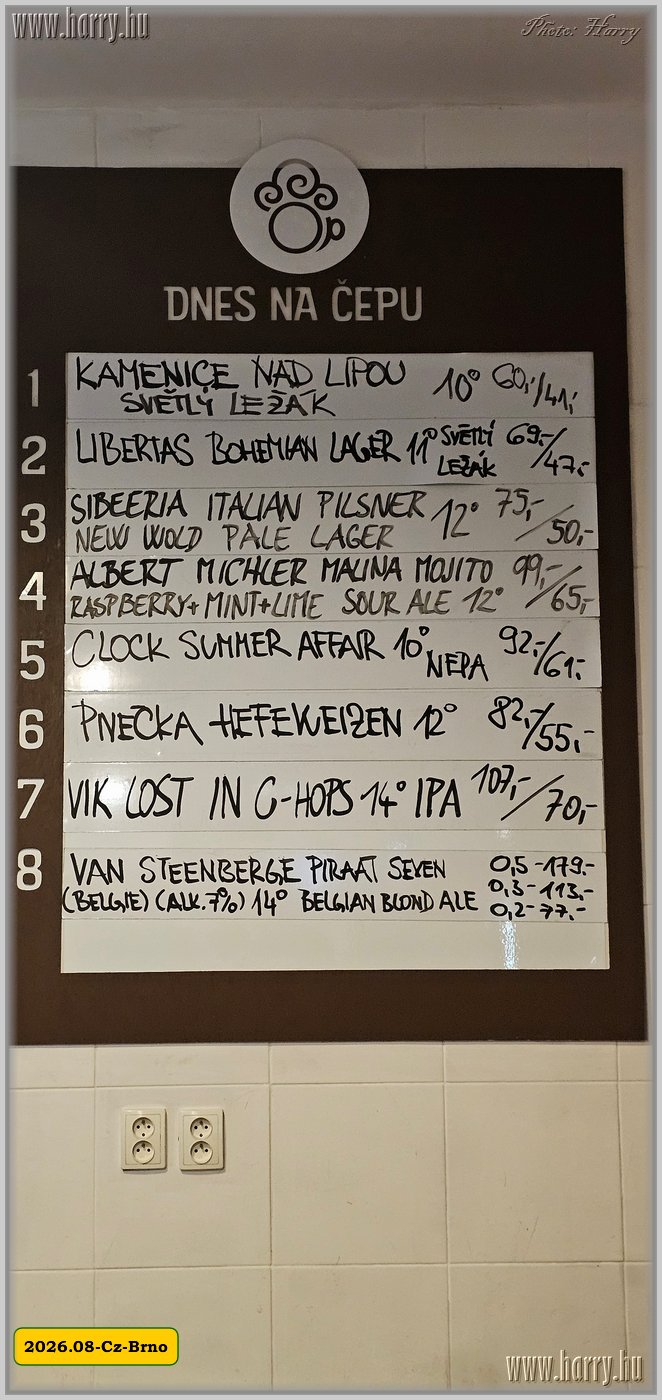 www.harry.hu
Photo: Harry
DNES NA ČEPU
1 KAMENICE NAD LIPOU 10° 60,-/41,-
SVĚTLÝ LEŽÁK
2 LIBERTAS BOHEMIAN LAGER 11° SVĚTLÝ LEŽÁK 69,-/47,-
3 SIBEERIA ITALIAN PILSNER 12° 75,-/50,-
NEW WOLD PALE LAGER
4 ALBERT MICHLER MALINA MOJITO 99,-/65,-
RASPBERRY+MINT+LIME SOUR ALE 12°
5 CLOCK SUMMER AFFAIR 10° NEPA 92,-/61,-
6 PNEČKA HEFEWEIZEN 12° 82,-/55,-
7 VIK LOST IN C-HOPS 14° IPA 107,-/70,-
8 VAN STEENBERGE PIRAAT SEVEN 0,5-179.-
(BELGIE) (ALK. 7%) 14° BELGIAN BLOND ALE 0,3-113.-
0,2-77.-
2026.08-Cz-Brno
www.harry.hu